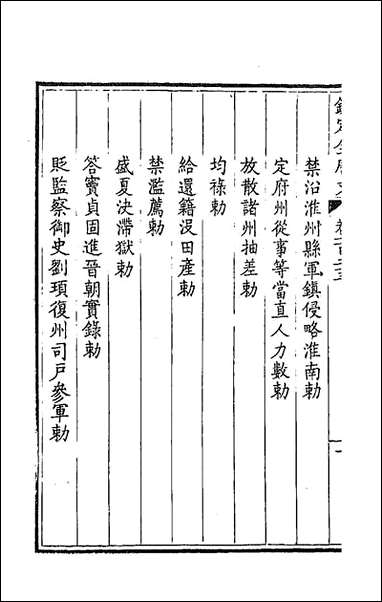 欽定全唐文 卷一百二十三 一
禁沿淮州縣軍鎮侵略淮南勅
定府州從事等當直人力數勅
放散諸州抽差勅
均祿勅
給還籍沒田產勅
禁濫薦勅
盛夏決滯獄勅
答竇貞固進晉朝實錄勅
貶監察御史劉頊復州司戶參軍勅